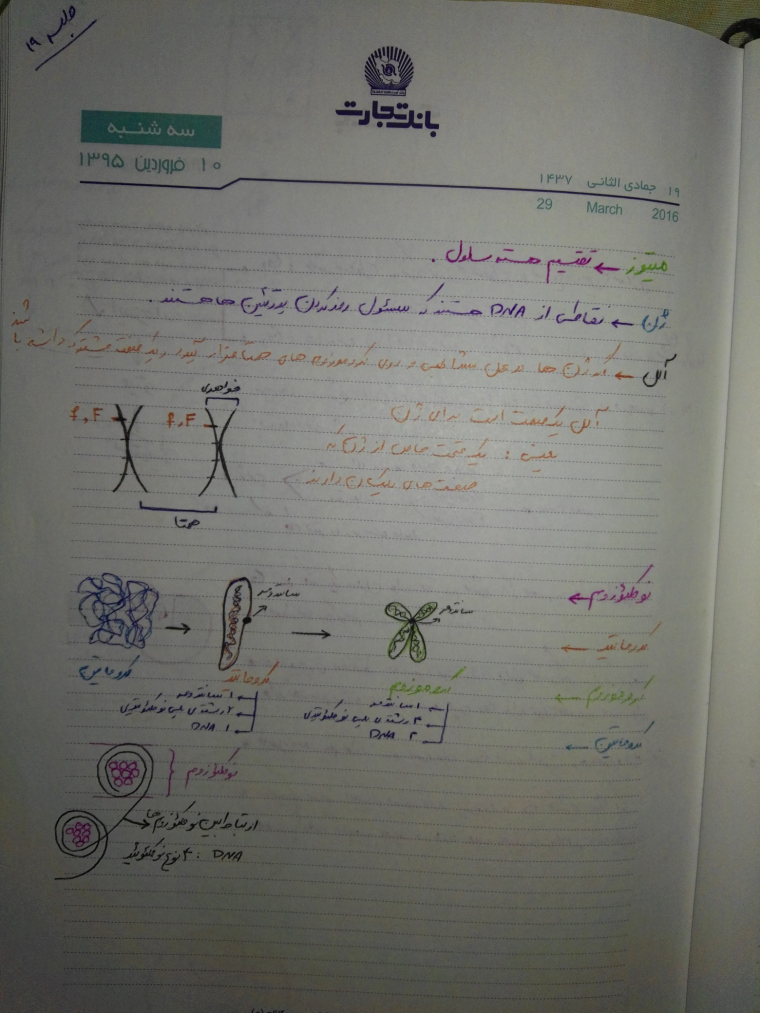 جلسه ۱۹
بانک تجارت
سه شنبه
۱۰ فروردین ۱۳۹۵
۱۹ جمادی الثانی ۱۴۳۷
29 March 2016
میتوز ← تقسیم هسته سلول .
ژن ← نقاطی از DNA هستند که مسئول رمز کردن پروتئین ها هستند .
آلل ← که ژن ها در محل مشابهی و روی کروموزوم های همتا قرار گیرد و یک صفت مشترک داشته باشند
خواهری
f , F
f , F
آلل یک صفت است برای ژن
یعنی : یک قسمت خاص از ژن که
صفت های یکسان دارند
همتا
نوکلئوزوم ←
کروماتید ←
کروموزوم ←
کروماتین ←
سانترومر
سانترومر
کروماتین
کروماتید
کروموزوم
۱ سانترومر
۲ رشته ی پلی نوکلئوتیدی
۱ DNA
۱ سانترومر
۴ رشته ی پلی نوکلئوتیدی
۲ DNA
نوکلئوزوم
ارتباط بین نوکلئوزوم ها
DNA : ۴ نوع نوکلئوتید